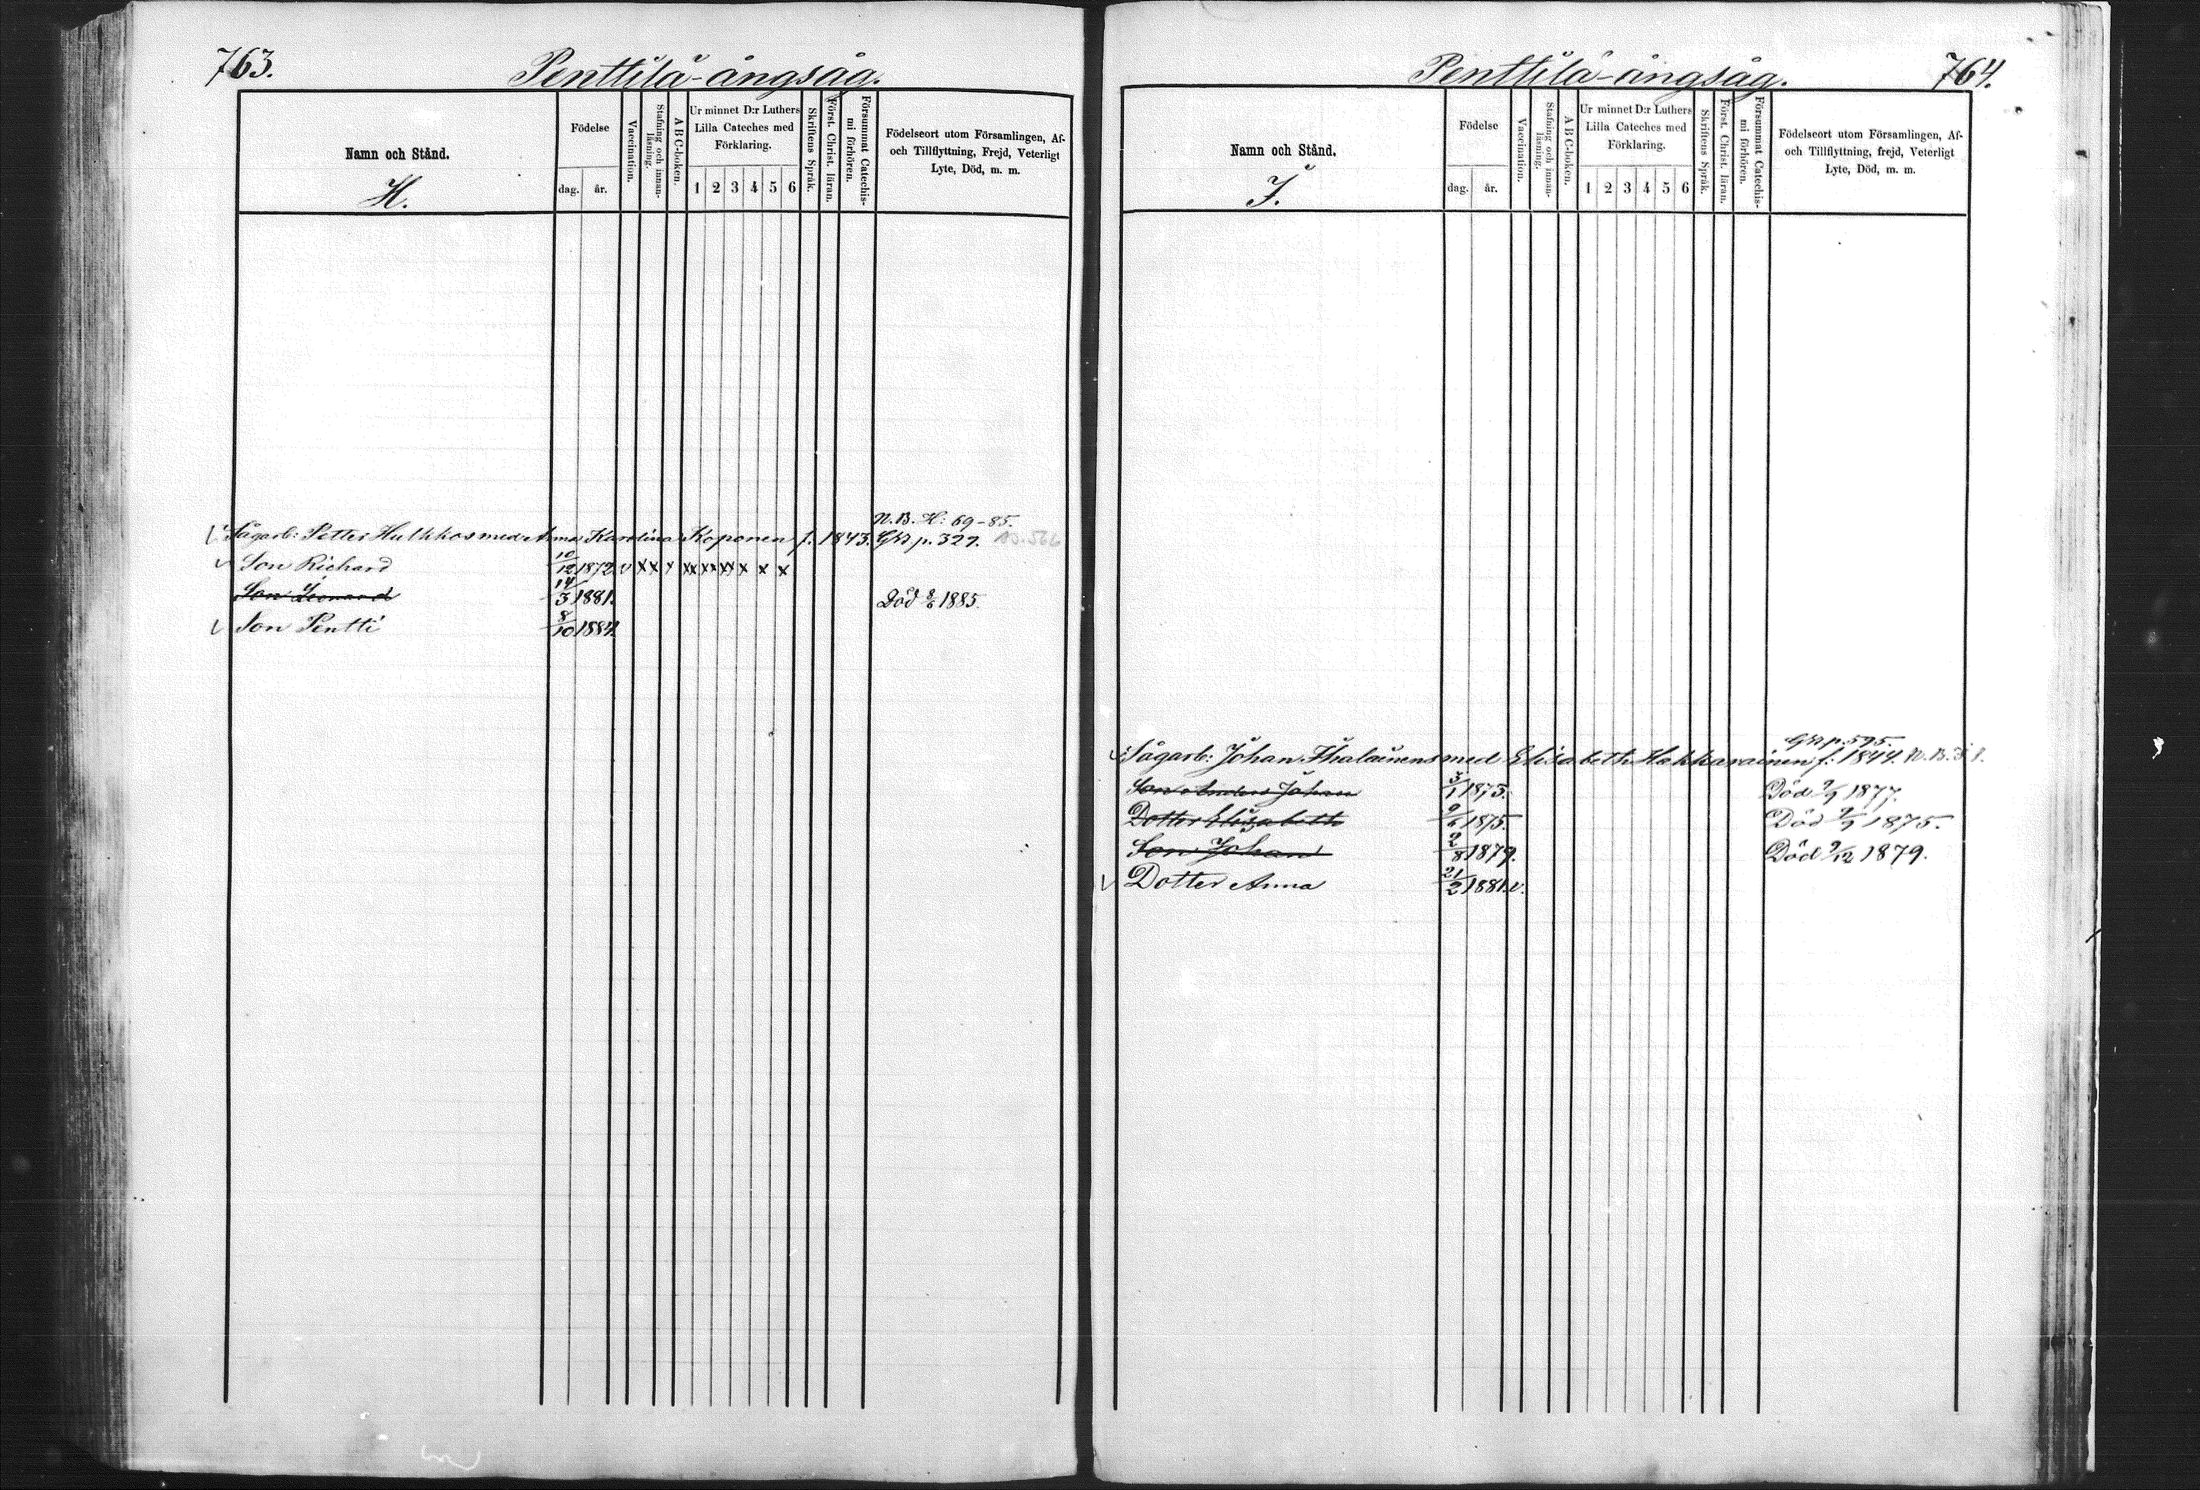 763.
Penttilä-ångsåg.
Namn och Stånd.
H.
Födelse
dag. år.
Vaccination.
Stafning och innanläsning.
A B C-boken.
Ur minnet D:r Luthers
Lilla Cateches med
Förklaring.
1 2 3 4 5 6
Skriftens Språk.
Först. Christ. läran.
Försummat Catechismi förhören.
Födelseort utom Församlingen, Af-
och Tillflyttning, Frejd, Veterligt
Lyte, Död, m. m.
N.B. H: 69-85.
Sågarb: Petter Hulkkos med Anna Karolina Koponen f. 1843. p. 327.
Son Richard 10/12 1872 v x x x xx xx xx x x x
Son Leonard 14/3 1881. Död 8/6 1885.
Son Pentti 8/10 1884.
Penttilä-ångsåg.
764.
Namn och Stånd.
I.
Födelse
dag. år.
Vaccination.
Stafning och innanläsning.
A B C-boken.
Ur minnet D:r Luthers
Lilla Cateches med
Förklaring.
1 2 3 4 5 6
Skriftens Språk.
Först. Christ. läran.
Försummat Catechismi förhören.
Födelseort utom Församlingen, Af-
och Tillflyttning, frejd, Veterligt
Lyte, Död, m. m.
p. 595.
Sågarb: Johan Ihalainens med Elisabeth Hakkarainen f. 1844. N.B.
Son Anders Johan 3/1 1873. Död 9/9 1877.
Dotter Elisabeth 9/6 1875. Död 9/9 1875.
Son Johan 2/8 1879. Död 9/12 1879.
Dotter Anna 21/2 1881. v.